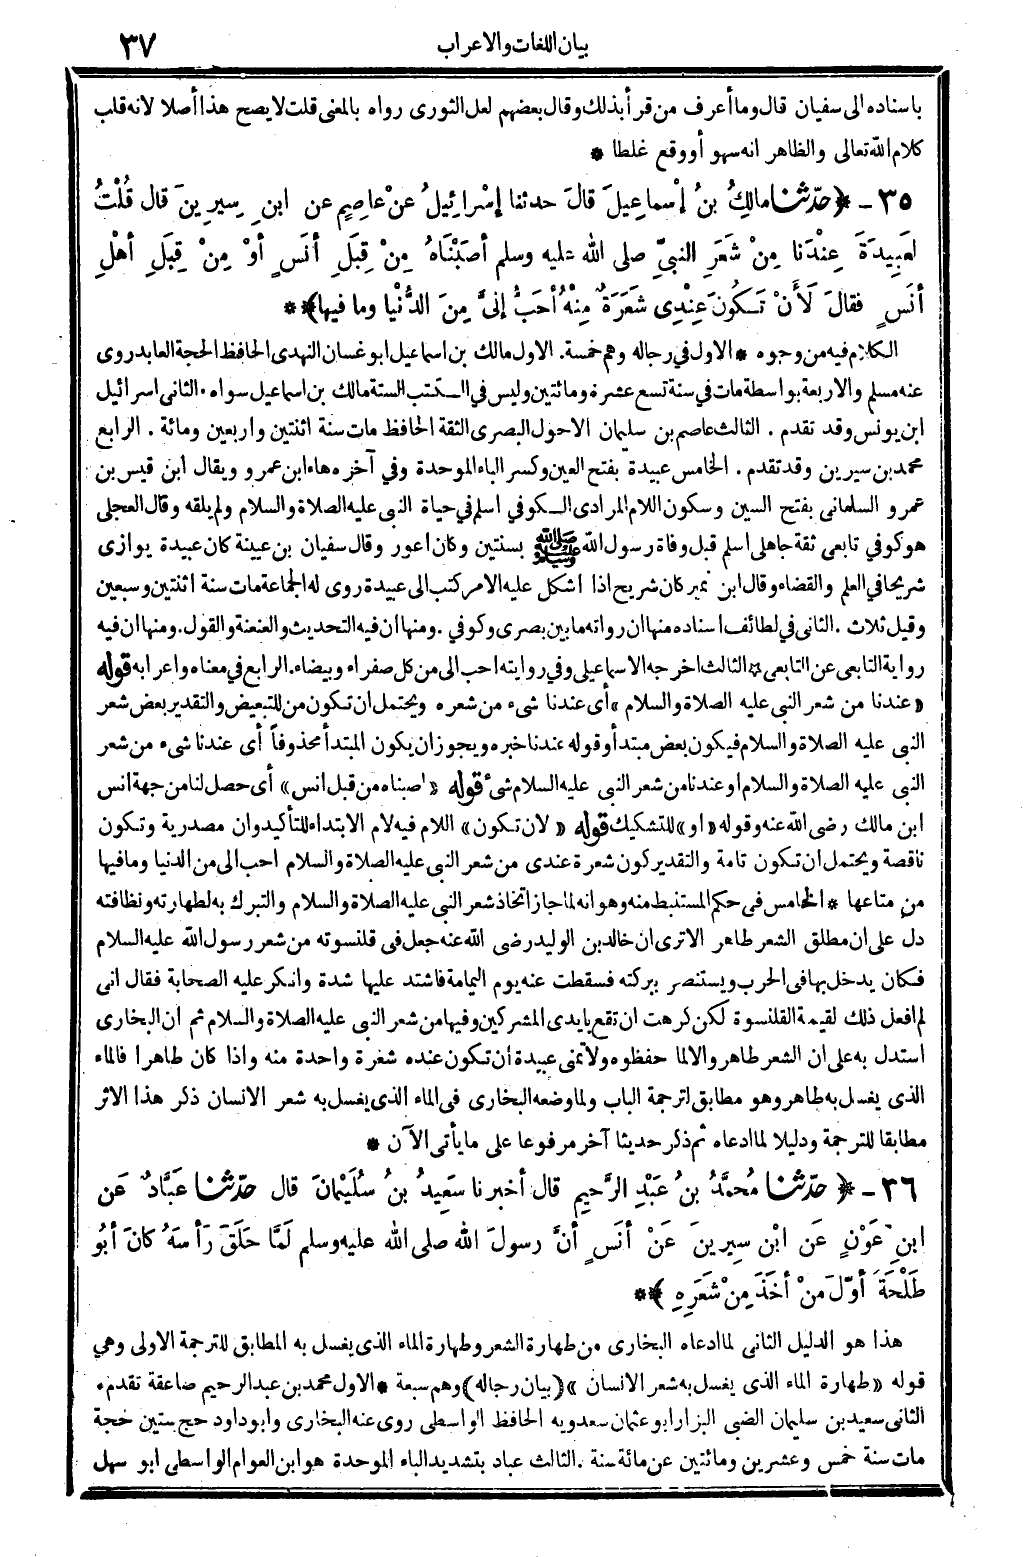 بيان اللغات والاعراب ٣٧
باسناده الى سفيان قال وما أعرف من قرأ بذلك وقال بعضهم لعل الثورى رواه بالمعنى قلت لا يصح هذا أصلا لانه قلب
كلام الله تعالى والظاهر انه سهو أو وقع غلطا *
٣٥ - ﴿ حَدّثنا مالِكُ بنُ إسْماعِيلَ قالَ حدثنا إسْرائِيلُ عنْ عاصِمٍ عن ابنِ سِيرِينَ قال قُلْتُ
لِعَبِيدَةَ عِنْدَنا مِنْ شَعَرِ النبيِّ صلى الله عليه وسلم أصَبْنَاهُ مِنْ قِبَلِ أنَسٍ أوْ مِنْ قِبَلِ أهْلِ
أنَسٍ فقالَ لَأَنْ تَكُونَ عِنْدِى شَعَرَةٌ مِنْهُ أحَبُّ إلىَّ مِنَ الدُّنْيا وما فيها﴾ **
الكلام فيه من وجوه * الاول في رجاله وهم خمسة. الاول مالك بن اسماعيل ابو غسان النهدى الحافظ الحجة العابد روى
عنه مسلم والاربعة بواسطة مات في سنة تسع عشرة ومائتين وليس في الكتب الستة مالك بن اسماعيل سواه. الثانى اسرائيل
ابن يونس وقد تقدم . الثالث عاصم بن سليمان الاحول البصرى الثقة الحافظ مات سنة اثنتين واربعين ومائة . الرابع
محمد بن سيرين وقد تقدم . الخامس عبيدة بفتح العين وكسر الباء الموحدة وفي آخره هاء ابن عمرو ويقال ابن قيس بن
عمرو السلمانى بفتح السين وسكون اللام المرادى الكوفي اسلم في حياة النبى عليه الصلاة والسلام ولم يلقه وقال العجلى
هو كوفي تابعى ثقة جاهلى اسلم قبل وفاة رسول الله ﷺ بسنتين وكان اعور وقال سفيان بن عيينة كان عبيدة يوازى
شريحا في العلم والقضاء وقال ابن نمير كان شريح اذا اشكل عليه الامر كتب الى عبيدة روى له الجماعة مات سنة اثنتين وسبعين
وقيل ثلاث . الثانى في لطائف اسناده منها ان رواته ما بين بصرى وكوفي . ومنها ان فيه التحديث والعنعنة والقول . ومنها ان فيه
رواية التابعى عن التابعى * الثالث اخرجه الاسماعيلى وفي روايته احب الى من كل صفراء وبيضاء. الرابع في معناه واعرابه قوله
« عندنا من شعر النبى عليه الصلاة والسلام » أى عندنا شىء من شعره ويحتمل ان تكون من للتبعيض والتقدير بعض شعر
النبى عليه الصلاة والسلام فيكون بعض مبتدأ وقوله عندنا خبره ويجوز ان يكون المبتدأ محذوفاً أى عندنا شىء من شعر
النبى عليه الصلاة والسلام او عندنا من شعر النبى عليه السلام شئ قوله « اصبناه من قبل انس » أى حصل لنا من جهة انس
ابن مالك رضى الله عنه وقوله « او » للتشكيك قوله « لان تكون » اللام فيه لام الابتداء للتأكيد وان مصدرية وتكون
ناقصة ويحتمل ان تكون تامة والتقدير كون شعرة عندى من شعر النبى عليه الصلاة والسلام احب الى من الدنيا ومافيها
من متاعها * الخامس في حكم المستنبط منه وهو انه لما جاز اتخاذ شعر النبى عليه الصلاة والسلام والتبرك به لطهارته ونظافته
دل على ان مطلق الشعر طاهر الا ترى ان خالد بن الوليد رضى الله عنه جعل في قلنسوته من شعر رسول الله عليه السلام
فكان يدخل بها في الحرب ويستنصر ببركته فسقطت عنه يوم اليمامة فاشتد عليها شدة وانكر عليه الصحابة فقال انى
لم افعل ذلك لقيمة القلنسوة لكن كرهت ان تقع بايدى المشركين وفيها من شعر النبى عليه الصلاة والسلام ثم ان البخارى
استدل به على ان الشعر طاهر والا لما حفظوه ولا تمنى عبيدة أن تكون عنده شعرة واحدة منه واذا كان طاهرا فالماء
الذى يغسل به طاهر وهو مطابق لترجمة الباب ولما وضعه البخارى في الماء الذى يغسل به شعر الانسان ذكر هذا الاثر
مطابقا للترجمة ودليلا لما ادعاه ثم ذكر حديثا آخر مرفوعا على ما يأتى الآن *
٣٦ - ﴿ حَدّثنا مُحمَّدُ بنُ عَبْدِ الرَّحِيمِ قال أخبرنا سَعِيدُ بنُ سُلَيْمَانَ قال حَدّثنا عَبَّادٌ عَن
ابنِ عَوْنٍ عَن ابْنِ سِيرِينَ عَنْ أنَسٍ أنَّ رسولَ الله صلى الله عليه وسلم لَمَّا حَلَقَ رَأسَهُ كانَ أبُو
طَلْحَةَ أوّلَ مَنْ أخَذَ مِنْ شَعَرِهِ ﴾ **
هذا هو الدليل الثانى لما ادعاه البخارى من طهارة الشعر وطهارة الماء الذى يغسل به المطابق للترجمة الاولى وهي
قوله « طهارة الماء الذى يغسل به شعر الانسان » (بيان رجاله) وهم سبعة * الاول محمد بن عبد الرحيم صاعقة تقدم.
الثانى سعيد بن سليمان الضبى البزار ابو عثمان سعدويه الحافظ الواسطى روى عنه البخارى وابو داود حج ستين حجة
مات سنة خمس وعشرين ومائتين عن مائة سنة . الثالث عباد بتشديد الباء الموحدة هو ابن العوام الواسطى ابو سهل